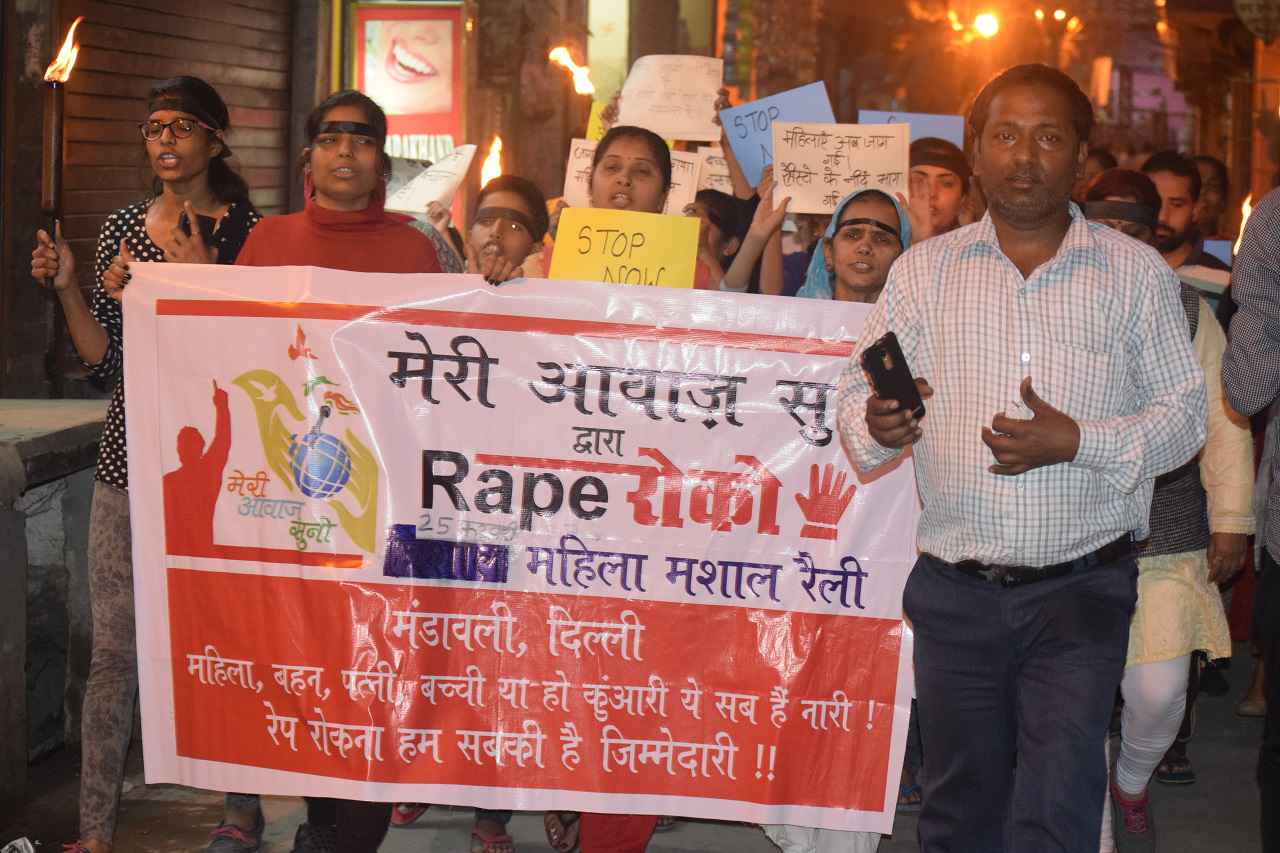 STOP
STOP
NOW
महिलाएं अब जाग
गई।
रेपिस्टो के नींद भाग
गई।
मेरी आवाज़ सु
द्वारा
Rape रोको
25
महिला मशाल रैली
मेरी
आवाज
सुनो
मंडावली, दिल्ली
महिला, बहन, पत्नी, बच्ची या हो कुंआरी ये सब हैं नारी !
रेप रोकना हम सबकी है जिम्मेदारी !!